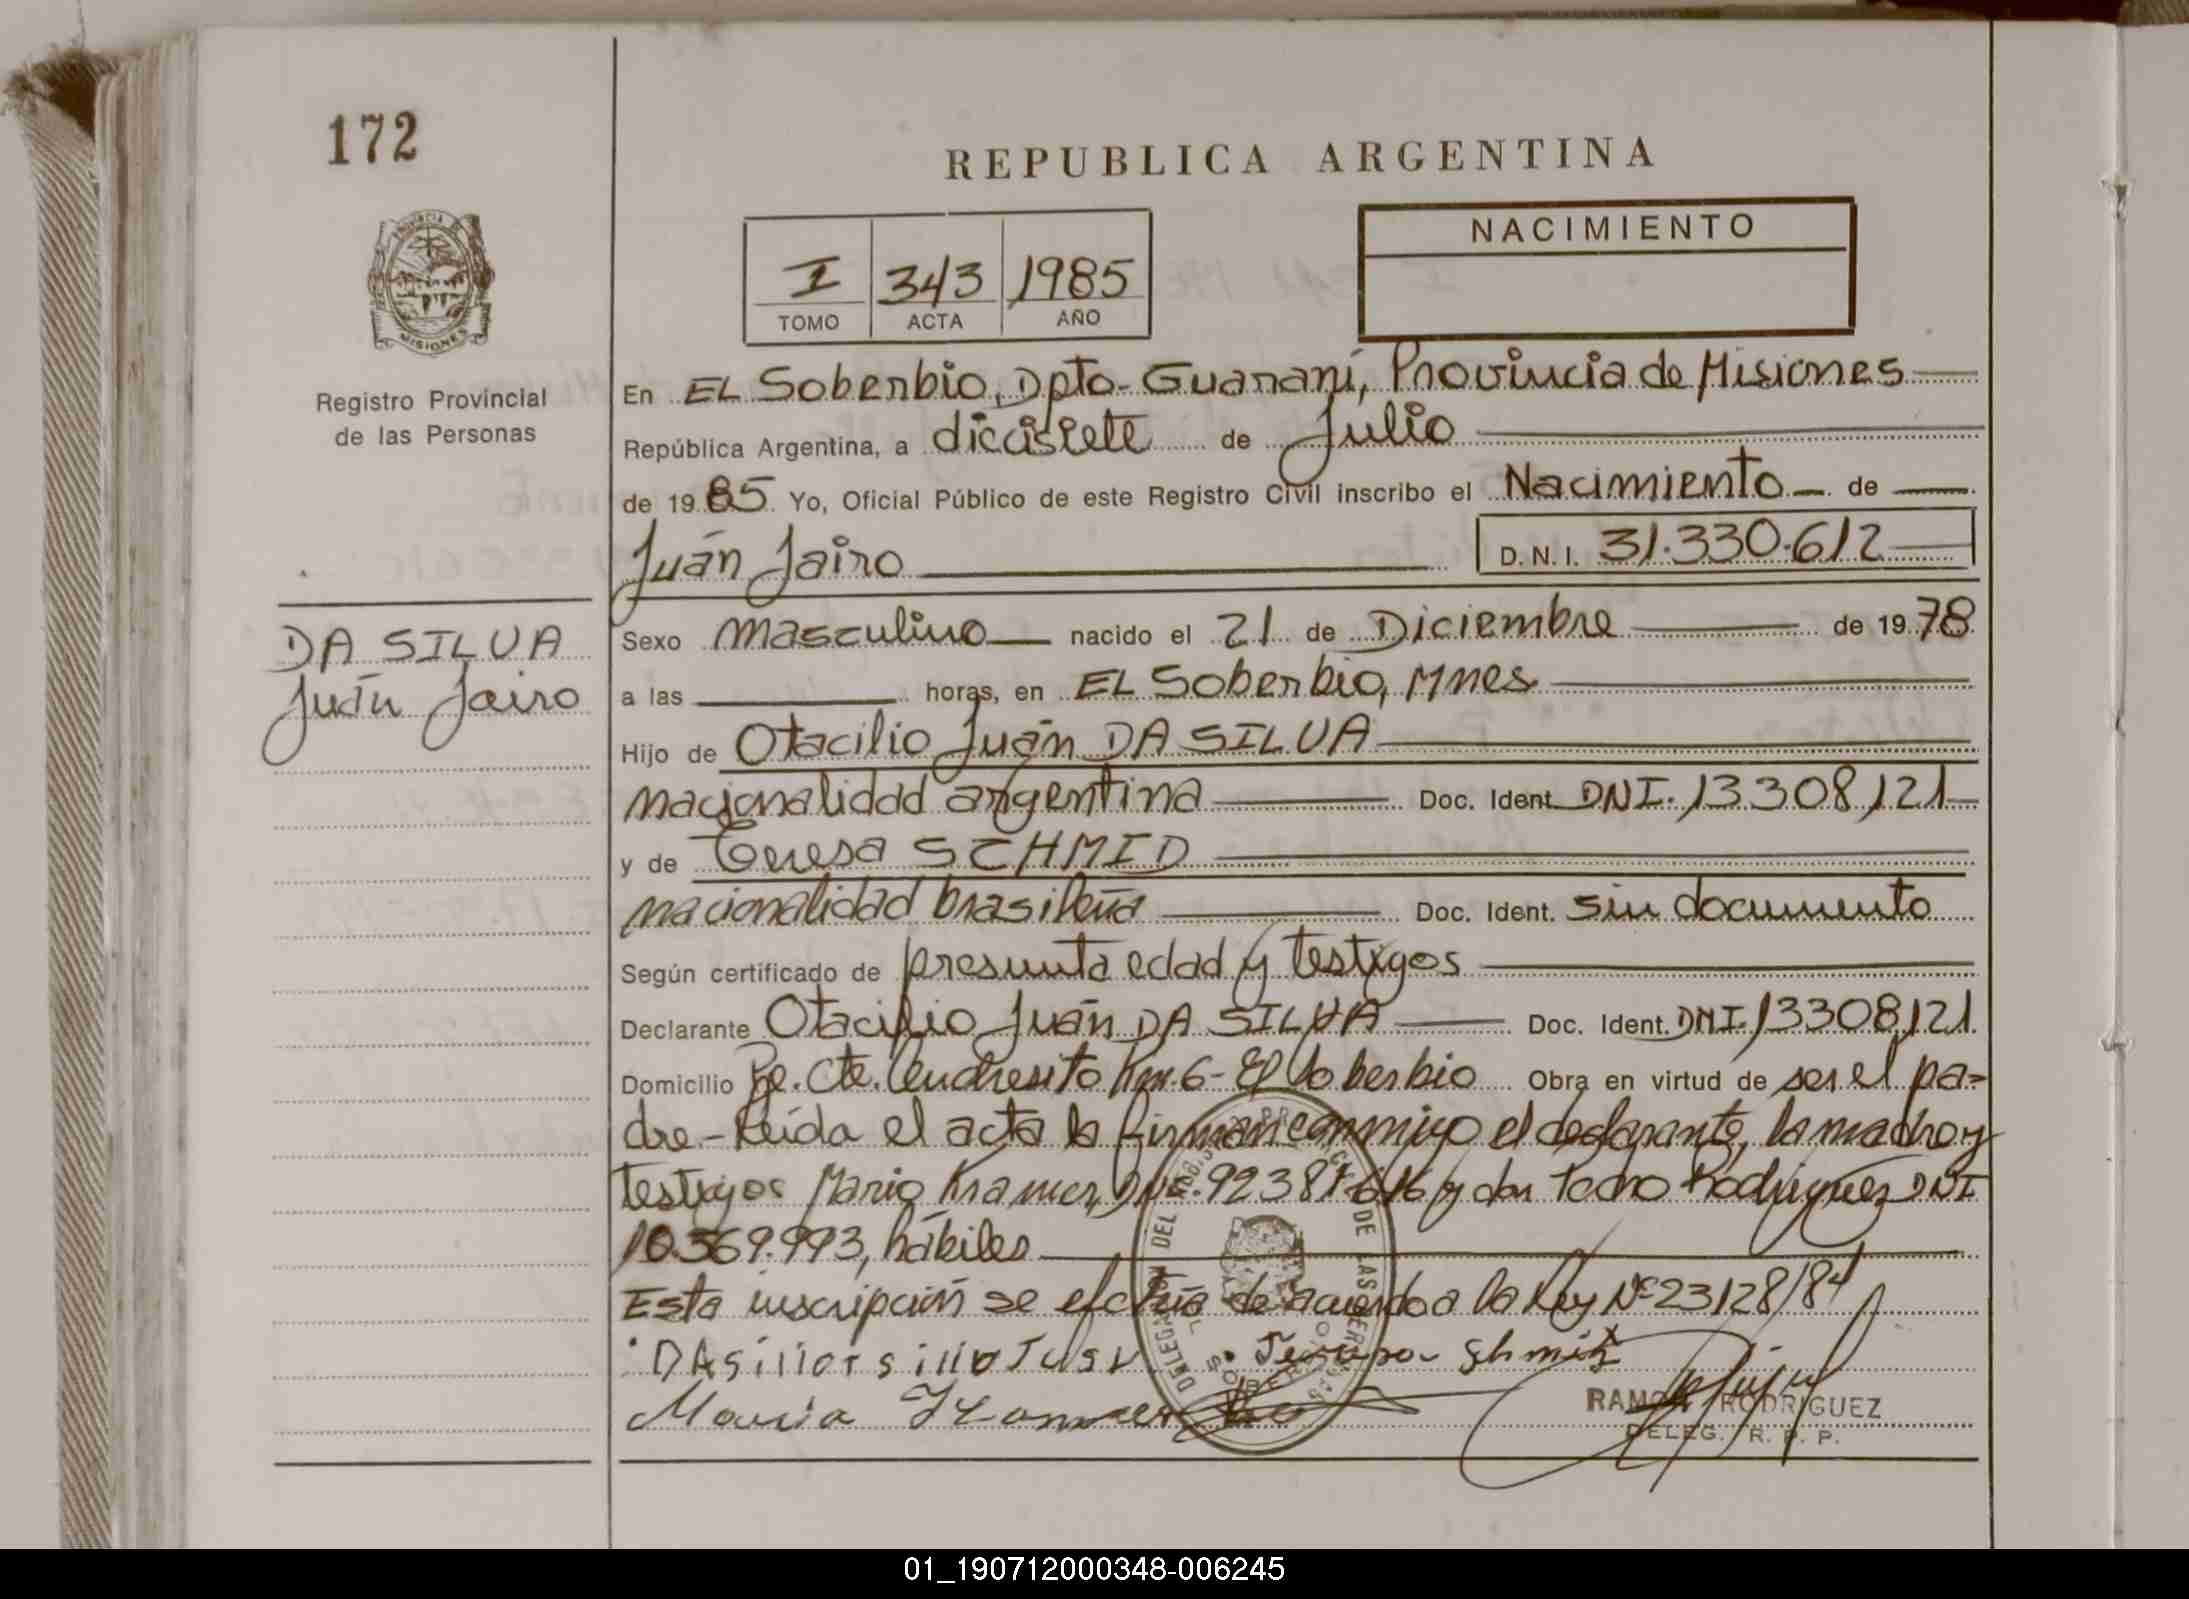 172
REPUBLICA ARGENTINA
PROVINCIA DE
MISIONES
Registro Provincial
de las Personas
I 343 1985
TOMO ACTA AÑO
NACIMIENTO
En EL Soberbio, Dpto- Guaraní, Provincia de Misiones
República Argentina, a diecisiete de Julio
de 1985 Yo, Oficial Público de este Registro Civil inscribo el Nacimiento de
Juán Jairo D.N.I. 31.330.612
DA SILVA
Juán Jairo
Sexo masculino nacido el 21 de Diciembre de 1978
a las horas, en EL Soberbio, Mnes
Hijo de Otacilio Juán DA SILVA
nacionalidad argentina Doc. Ident. DNI. 13308121
y de Teresa SCHMID
nacionalidad brasileña Doc. Ident. sin documento
Según certificado de presunta edad y testigos
Declarante Otacilio Juán DA SILVA Doc. Ident. DNI. 13308121
Domicilio Cte. Andresito Km. 6- El Soberbio Obra en virtud de ser el pa=
dre- Leída el acta la firman conmigo el declarante, la madre y
testigos Mario Kramer, y don Pedro Rodriguez DNI
10.569.993, hábiles
Esta inscripción se efectúa de acuerdo a la Ley Nº 23128/84
RAMON RODRIGUEZ
DELEG. R. P. P.
01_190712000348-006245